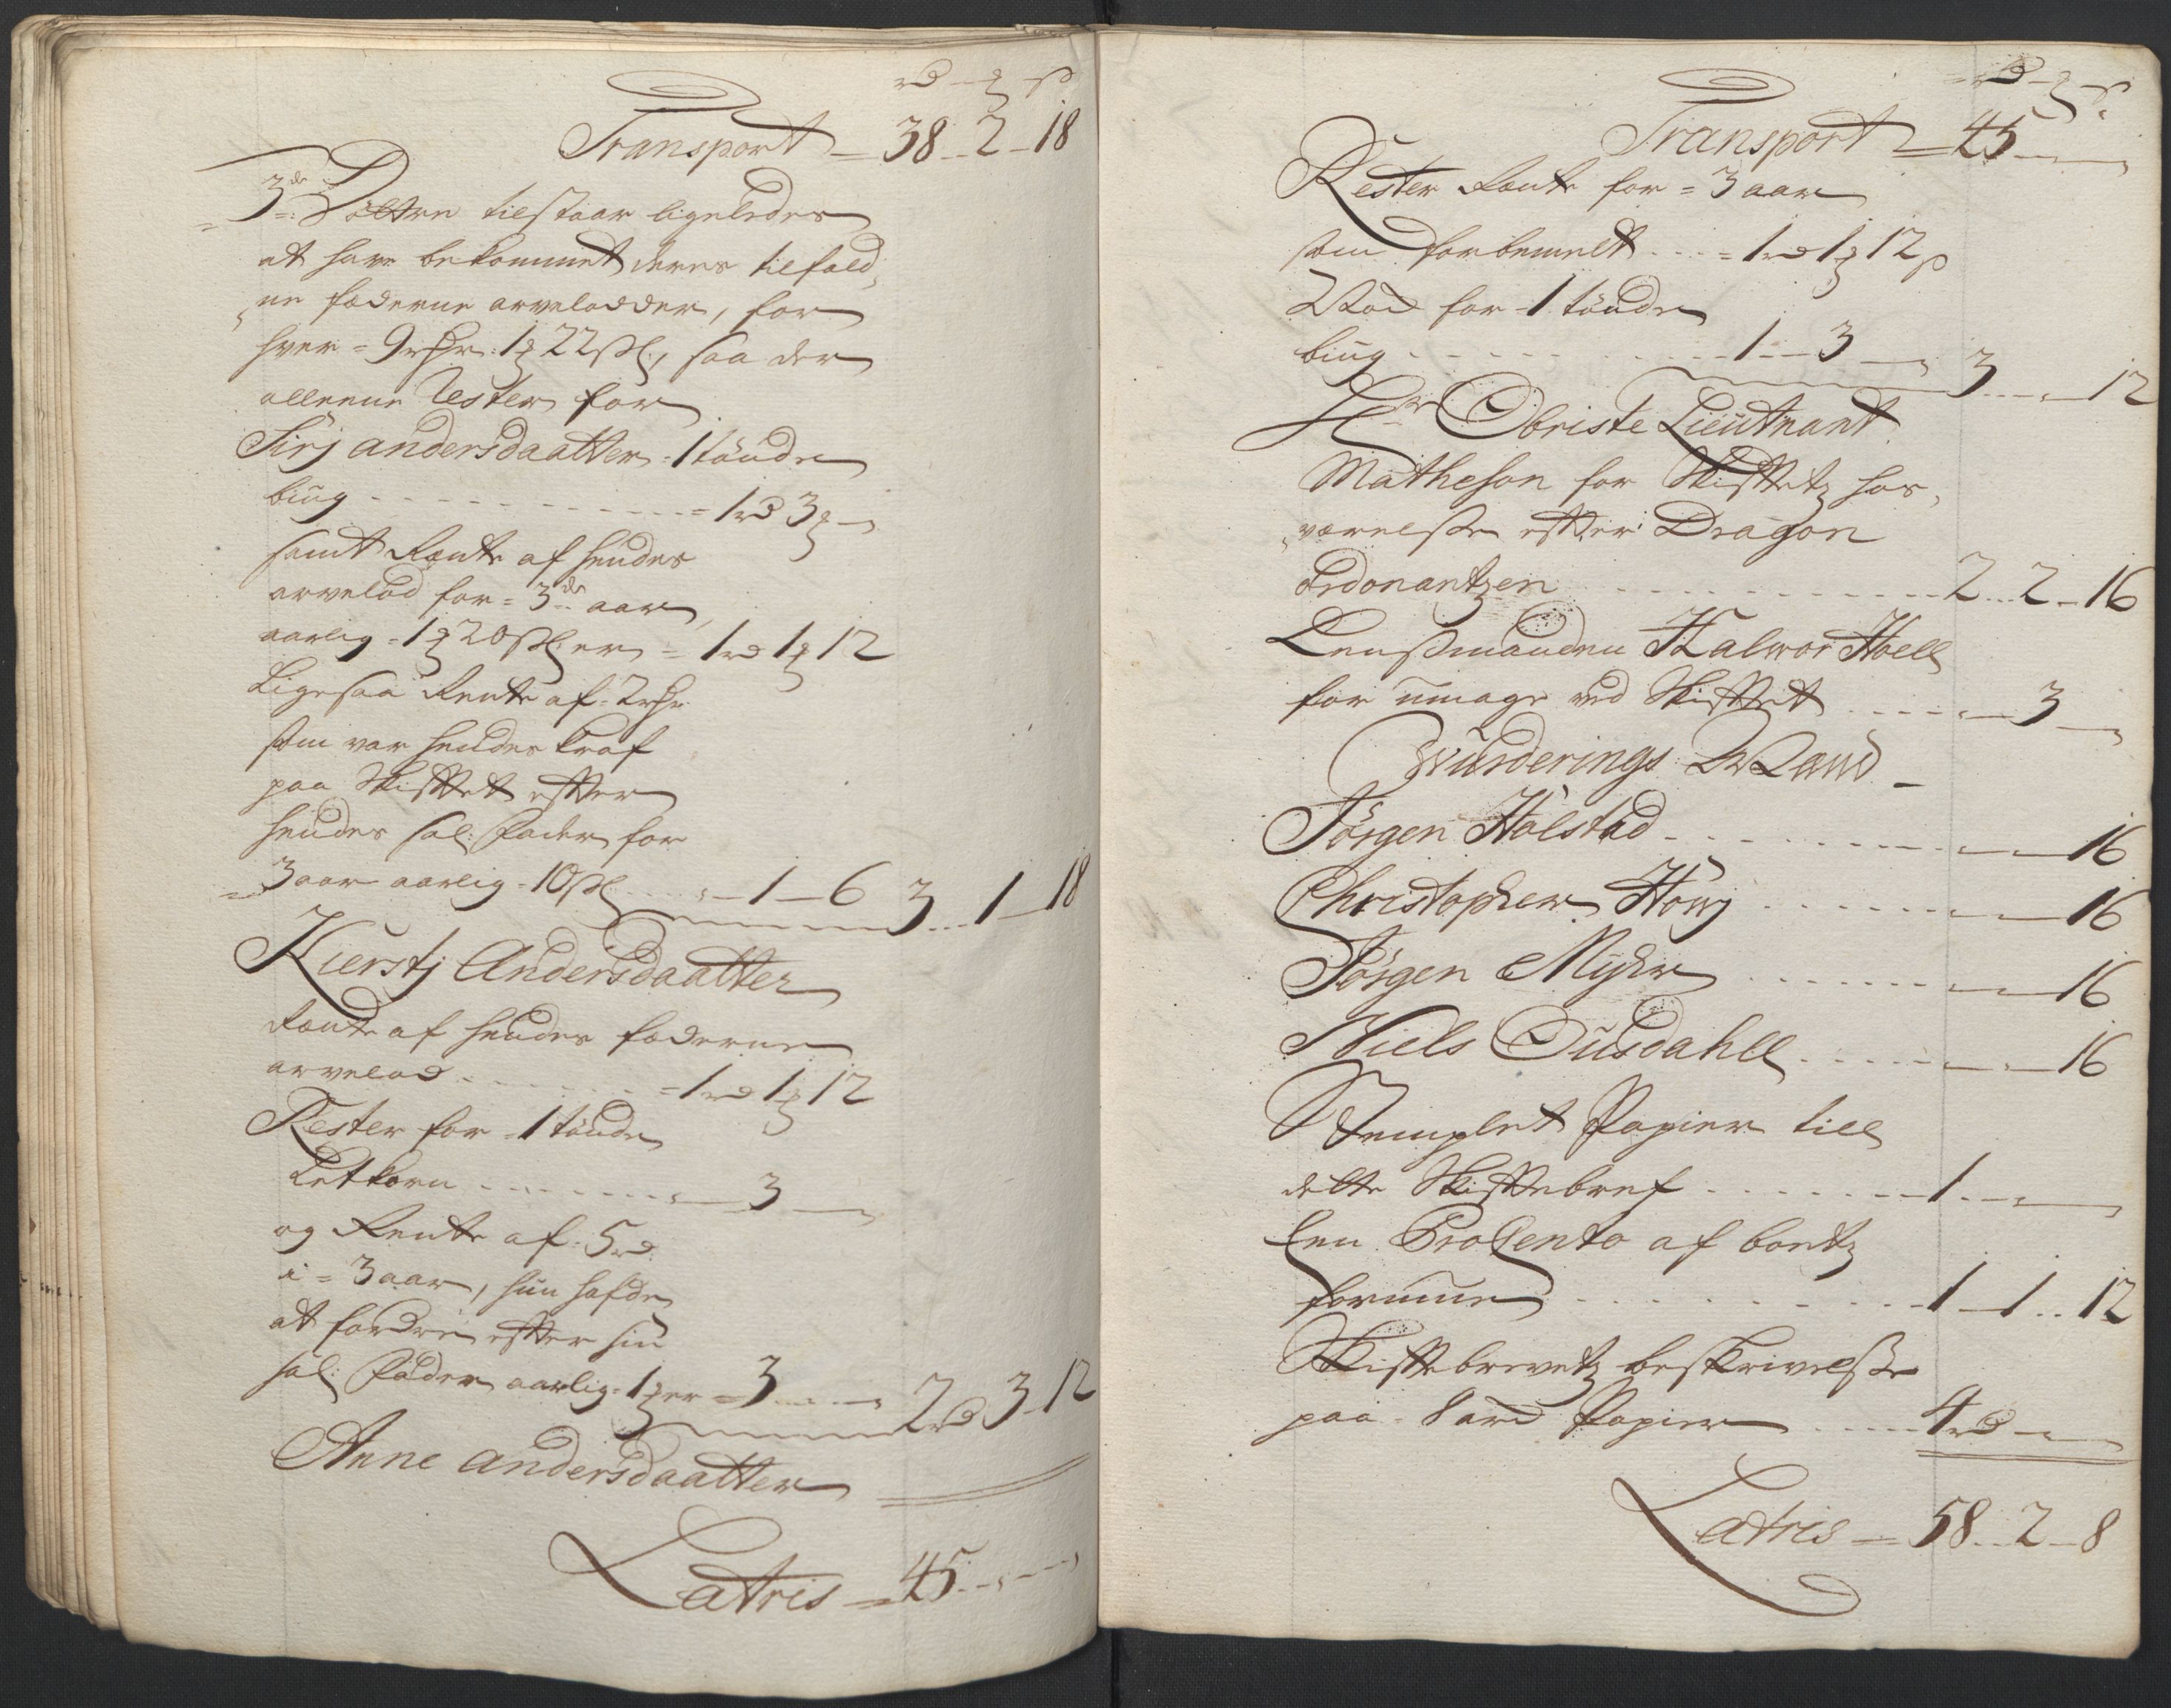 rd - ȝ - ß
Transport = 38 - 2 - 18
3de Döttre tilstaar ligeledes
at have bekommet deres tilfald
ne fæderne arvelodder, for
hver = 9 rdr: 1 ȝ 22 ßl, saa der
alleene Rester for
Sirj andersdaatter = 1 tönde
biug - - - = 1 rd 3 ȝ -
samt Rente af hendes
arvelod for = 3de aar
aarlig = 1 ȝ 20 ßl er = 1 rd 1 ȝ 12
Ligesaa Rente af = 2 rdr
som var hendes kraf
paa Skifftet effter
hendes Sal: Fader for
3 aar aarlig = 10 ßl - - 1 - 6 3 - 1 - 18
Kierstj Andersdaatter
Rente af hendes fæderne
arvelod - - - = 1 rd 1 ȝ 12
Rester for = 1 tönde
Letkorn - - - - 3 -
og Rente af = 5 rd
i = 3 aar, hun hafde
at fordre effter sin
sal: Fader aarlig = 1 ȝ er = 3 - - 2 rd 3 - 12
Anne andersdaatter
Latris = 45 - - -
rd - ȝ - ß
Transport = 45 - -
Rester Rente for = 3 aar
som forbemelt - - = 1 rd 1 ȝ 12 ß
Stod for = 1 tönde
biug - - - 1 - 3 - 3 - - 12
Hr Obriste Lieutnant
Matheson for Skifftetz for
værelße effter Dragon
Ordonantzen - - - 2 - 2 - 16
Lensmanden Halwor Hoell
for umage ved Skifftet - - - 3 -
Wurderings Mænd
Jörgen Holstad - - - 16
Christopher Höwj - - - 16
Jörgen Myhr - - - 16
Niels Ousdahll - - - 16
Stemplet Papier till
dette Skifftebref - - - 1 - -
Een ProCento af boetz
formue - - - 1 - 1 - 12
Skifftebrevetz beskrivelße
paa = 8 ard Papier - - 4 rd - -
Latris = 58 - 2 - 8